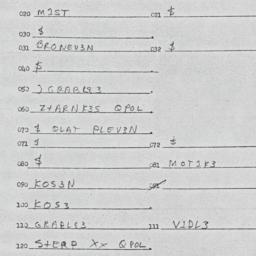 020 MIST 021 $
030 $
031 BRONEV3N 032 $
040 $
050 ) GRABLE3
060 Z+ARNK3S QPOL
070 $ OLAT PLEV3N
071 $ 072 $
080 $ 081 MOTIK3
090 KOS3N
100 KOS3
110 GRABLE3 111 VIDL3
120 S+ERP Xx QPOL